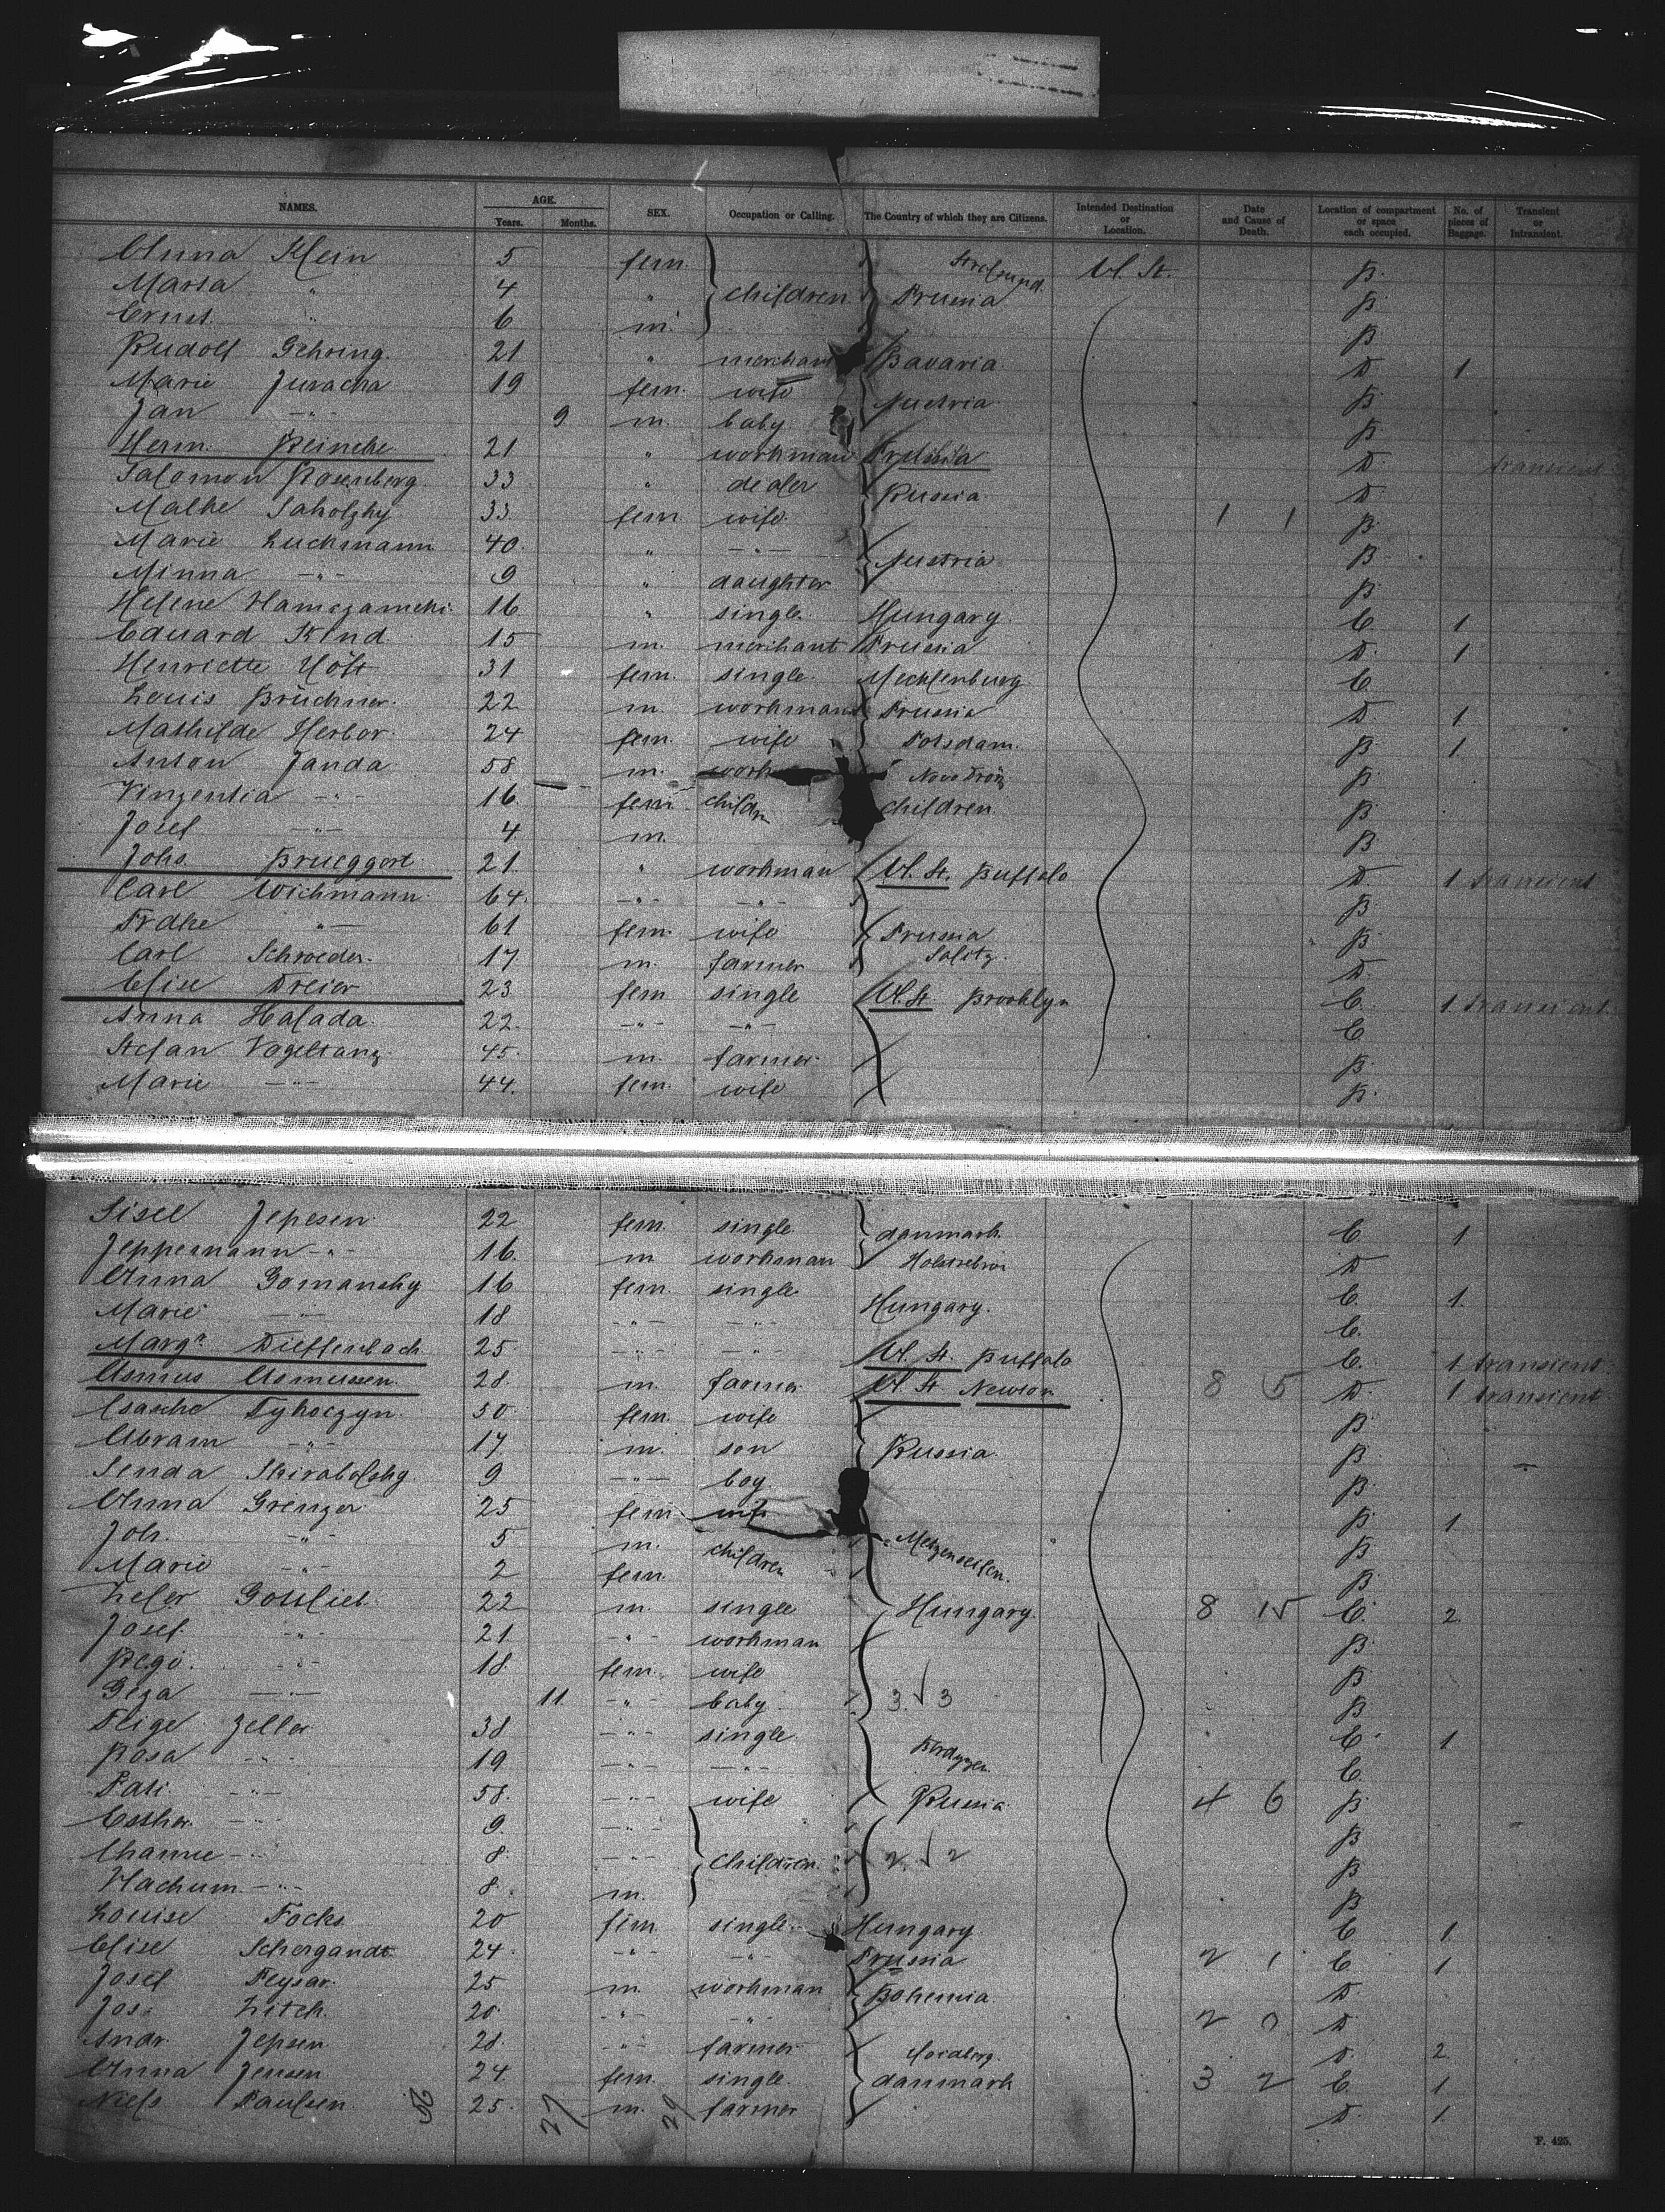 NAMES. AGE. Years. Months. SEX. Occupation or Calling. The Country of which they are Citizens. Intended Destination or Location. Date and Cause of Death. Location of compartment or space each occupied. No. of pieces of Baggage. Transient or Intransient.
Anna Klein 5 fem. Stralsund. U. St. B.
Marta " 4 " children Prussia B
Ernst " 6 m. B
Rudolf Gehring. 21 " merchant Bavaria. D. 1
Marie Juracha 19 fem. wife Austria B.
Jan -"- 9 m. baby B.
Herm. Reineke 21 " workman Prussia D. transient
Salomon Rosenberg 33 " dealer Russia D.
Malke 33. fem wife. 1 1 B.
Marie Luchmann 40. " -"- Austria B
Minna -"- 9 " daughter B
Helene 16 " single. Hungary. C. 1
Eduard Kind 15 m. merchant Prussia D. 1
Henriette Höft 31 fem. single. Mecklenburg C.
Louis Brückner. 22 m. workman Prussia D. 1
Mathilde Herbor. 24 fem. wife Potsdam. B. 1.
Anton Janda 58 m. B.
Vinzentia -"- 16. fem. childr children. B
Josef -"- 4. m. B
Johs. Brueggert 21. " workman U. St. Buffalo D 1 transient
Carl Wichmann. 64. -"- -"- B
Frdke -"- 61 fem. wife Prussia B.
Carl Schroeder. 17 m. farmer D.
Elise Dreier 23 fem single U. St. Brooklyn C. 1 transient.
Anna Halada. 22. -"- -"- C
Stefan Vogeltanz. 45. m. farmer. B.
Marie -"- 44. fem. wife B.
Sisel Jepesen 22 fem. single danmark. C. 1
Jeppemann -"- 16. m workman D
Anna Gomansky 16 fem. single. Hungary. C. 1.
Marie -"- 18 -"- -"- C.
Marg. Dieffenbach 25. -"- -"- U. St. Buffalo C. 1 transient
Asmus Asmussen. 28. m. farmer. U. St Newton 8 5 D. 1 transient
50 fem. wife B.
Abram -"- 17. m. son Russia. B
Senda 9 -"- boy. B.
Anna Grenzer 25 fem. wife B. 1
Joh. -"- 5 m. children Metzenseifen. B
Marie -"- 2 fem. B
Gottlieb 22 m. single Hungary. 8 15 C. 2.
Josef. -"- 21. -"- workman B
-"- 18. fem. wife B
Geza -"- 11. -"- baby 3 √ 3 B
Feige Zeller 38 -"- single. C. 1
Rosa -"- 19 -"- -"- C.
-"- 58. -"- wife Russia 4 6 B
Esther. -"- 9. -"- B
Channe -"- 8. -"- Children. 2 √ 2 B
Nachum -"- 8. m. B
Louise Focks 20 fem. single. Hungary C 1.
Elise 24. -"- -"- Prussia 2 1 C. 1
Josef 25 m. workman Bohemia. D.
Jos. 20. -"- -"- 2 0 D.
Andr. Jepsen. 28. -"- farmer D. 2
Anna Jensen 24. fem. single. danmark 3 2 C. 1
Niels Paulsen 25. m. farmer D. 1.
27 29
F. 425.